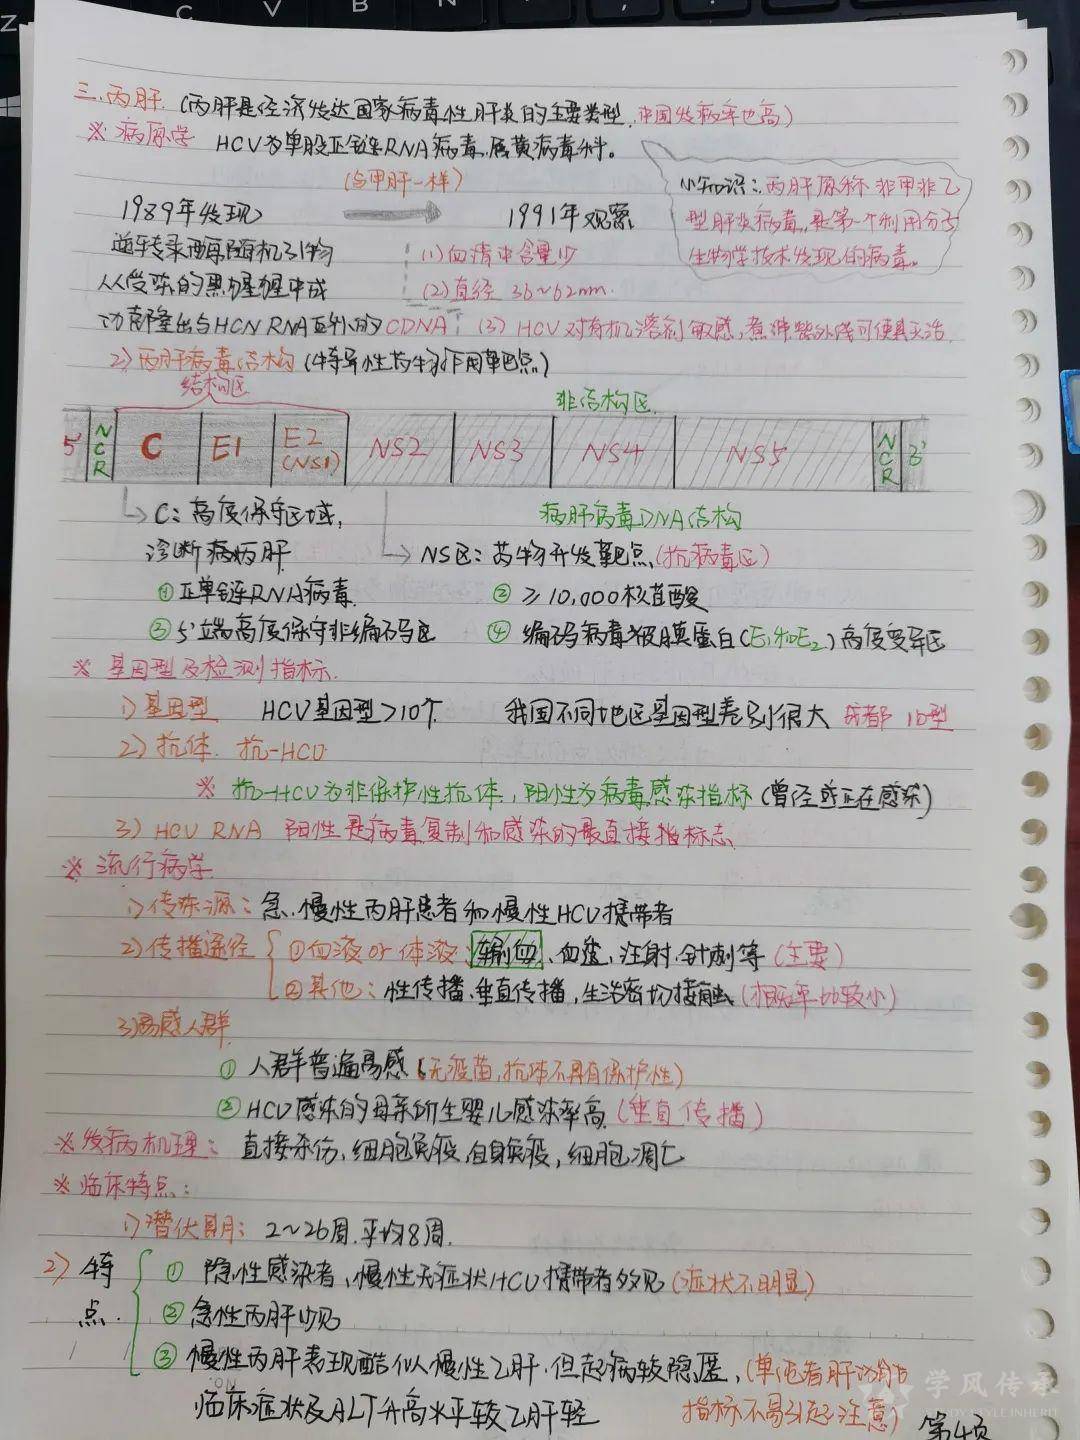 三.丙肝 (丙肝是经济发达国家病毒性肝炎的主要类型.中国发病率也高)
※ 病原学 HCV为单股正链RNA病毒.属黄病毒科。
(与甲肝一样)
小知识:丙肝原称 非甲非乙
型肝炎病毒,是第一个利用分子
生物学技术发现的病毒。
1989年发现 1991年观察
逆转录酶随机引物 (1)血清中含量少
从受染的黑猩猩中成 (2)直径 36~62nm.
功克隆出与HCN RNA互补的CDNA (3) HCV对有机溶剂敏感,煮沸紫外线可使其灭活.
2)丙肝病毒结构(特异性药物作用靶点)
结构区 非结构区
5' NCR C E1 E2(NS1) NS2 NS3 NS4 NS5 NCR 3'
C:高度保守区域, 病肝病毒DNA结构
诊断丙肝. NS区:药物开发靶点(抗病毒区)
①正单链RNA病毒. ② ≥10,000核苷酸
③ 5'端高度保守非编码区 ④ 编码病毒被膜蛋白(E1和E2)高度变异区
※ 基因型及检测指标.
1)基因型 HCV基因型>10个. 我国不同地区基因型差别很大 成都 1b型
2)抗体. 抗-HCV
※ 抗-HCV为非保护性抗体,阳性为病毒感染指标(曾经或正在感染)
3) HCV RNA 阳性是病毒复制和感染的最直接指标志.
※ 流行病学
1)传染源: 急.慢性丙肝患者和慢性HCV携带者
2)传播途径 ①血液or体液:输血、血透,注射.针刺等(主要)
②其他:性传播.垂直传播,生活密切接触(概率比较小)
3)易感人群.
① 人群普遍易感(无疫苗,抗体不具有保护性)
② HCV感染的母亲所生婴儿感染率高.(垂直传播)
※发病机理: 直接杀伤,细胞免疫,自身免疫,细胞凋亡
※ 临床特点:
1)潜伏期: 2~26周.平均8周.
2)特点. ① 隐性感染者,慢性无症状HCV携带者多见(症状不明显)
② 急性丙肝少见
③ 慢性丙肝表现酷似慢性乙肝.但起病较隐匿,(单纯者肝功能
临床症状及ALT升高水平较乙肝轻 指标不易引起注意)
学风传承
STUDY STYLE INHERIT
第4页